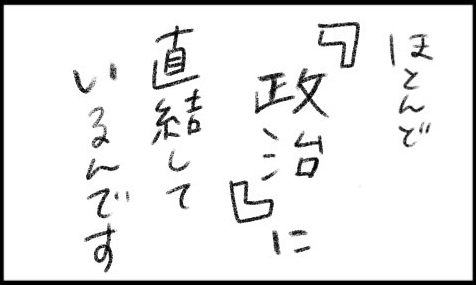 ほとんど
『政治』に
直結して
いるんです